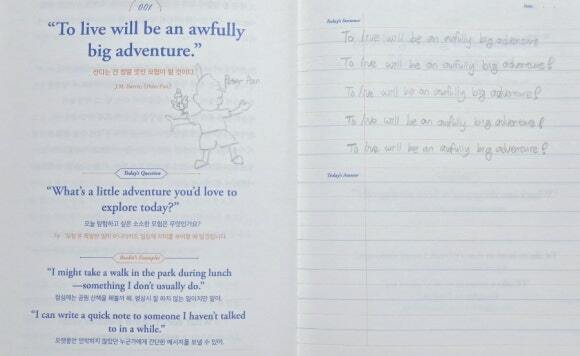 001
“To live will be an awfully
big adventure.”
산다는 건 정말 멋진 모험이 될 것이다.
J.M. Barrie, [Peter Pan]
Peter Pan
Today's Question
“What's a little adventure you'd love to
explore today?”
오늘 탐험하고 싶은 소소한 모험은 무엇인가요?
Tip
Reader's Examples
“I might take a walk in the park during lunch
—something I don't usually do.”
점심에는 공원 산책을 해볼까 해. 평상시 잘 하지 않는 일이지만 말야.
“I can write a quick note to someone I haven't talked
to in a while.”
오랫동안 연락하지 않았던 누군가에게 간단한 메시지를 보낼 수 있어.
Date.
Today's Sentence
To live will be an awfully big adventure
To live will be an awfully big adventure!
To live will be an awfully big adventure!
To live will be an awfully big adventure!
To live will be an awfully big adventure!
Today's Answer